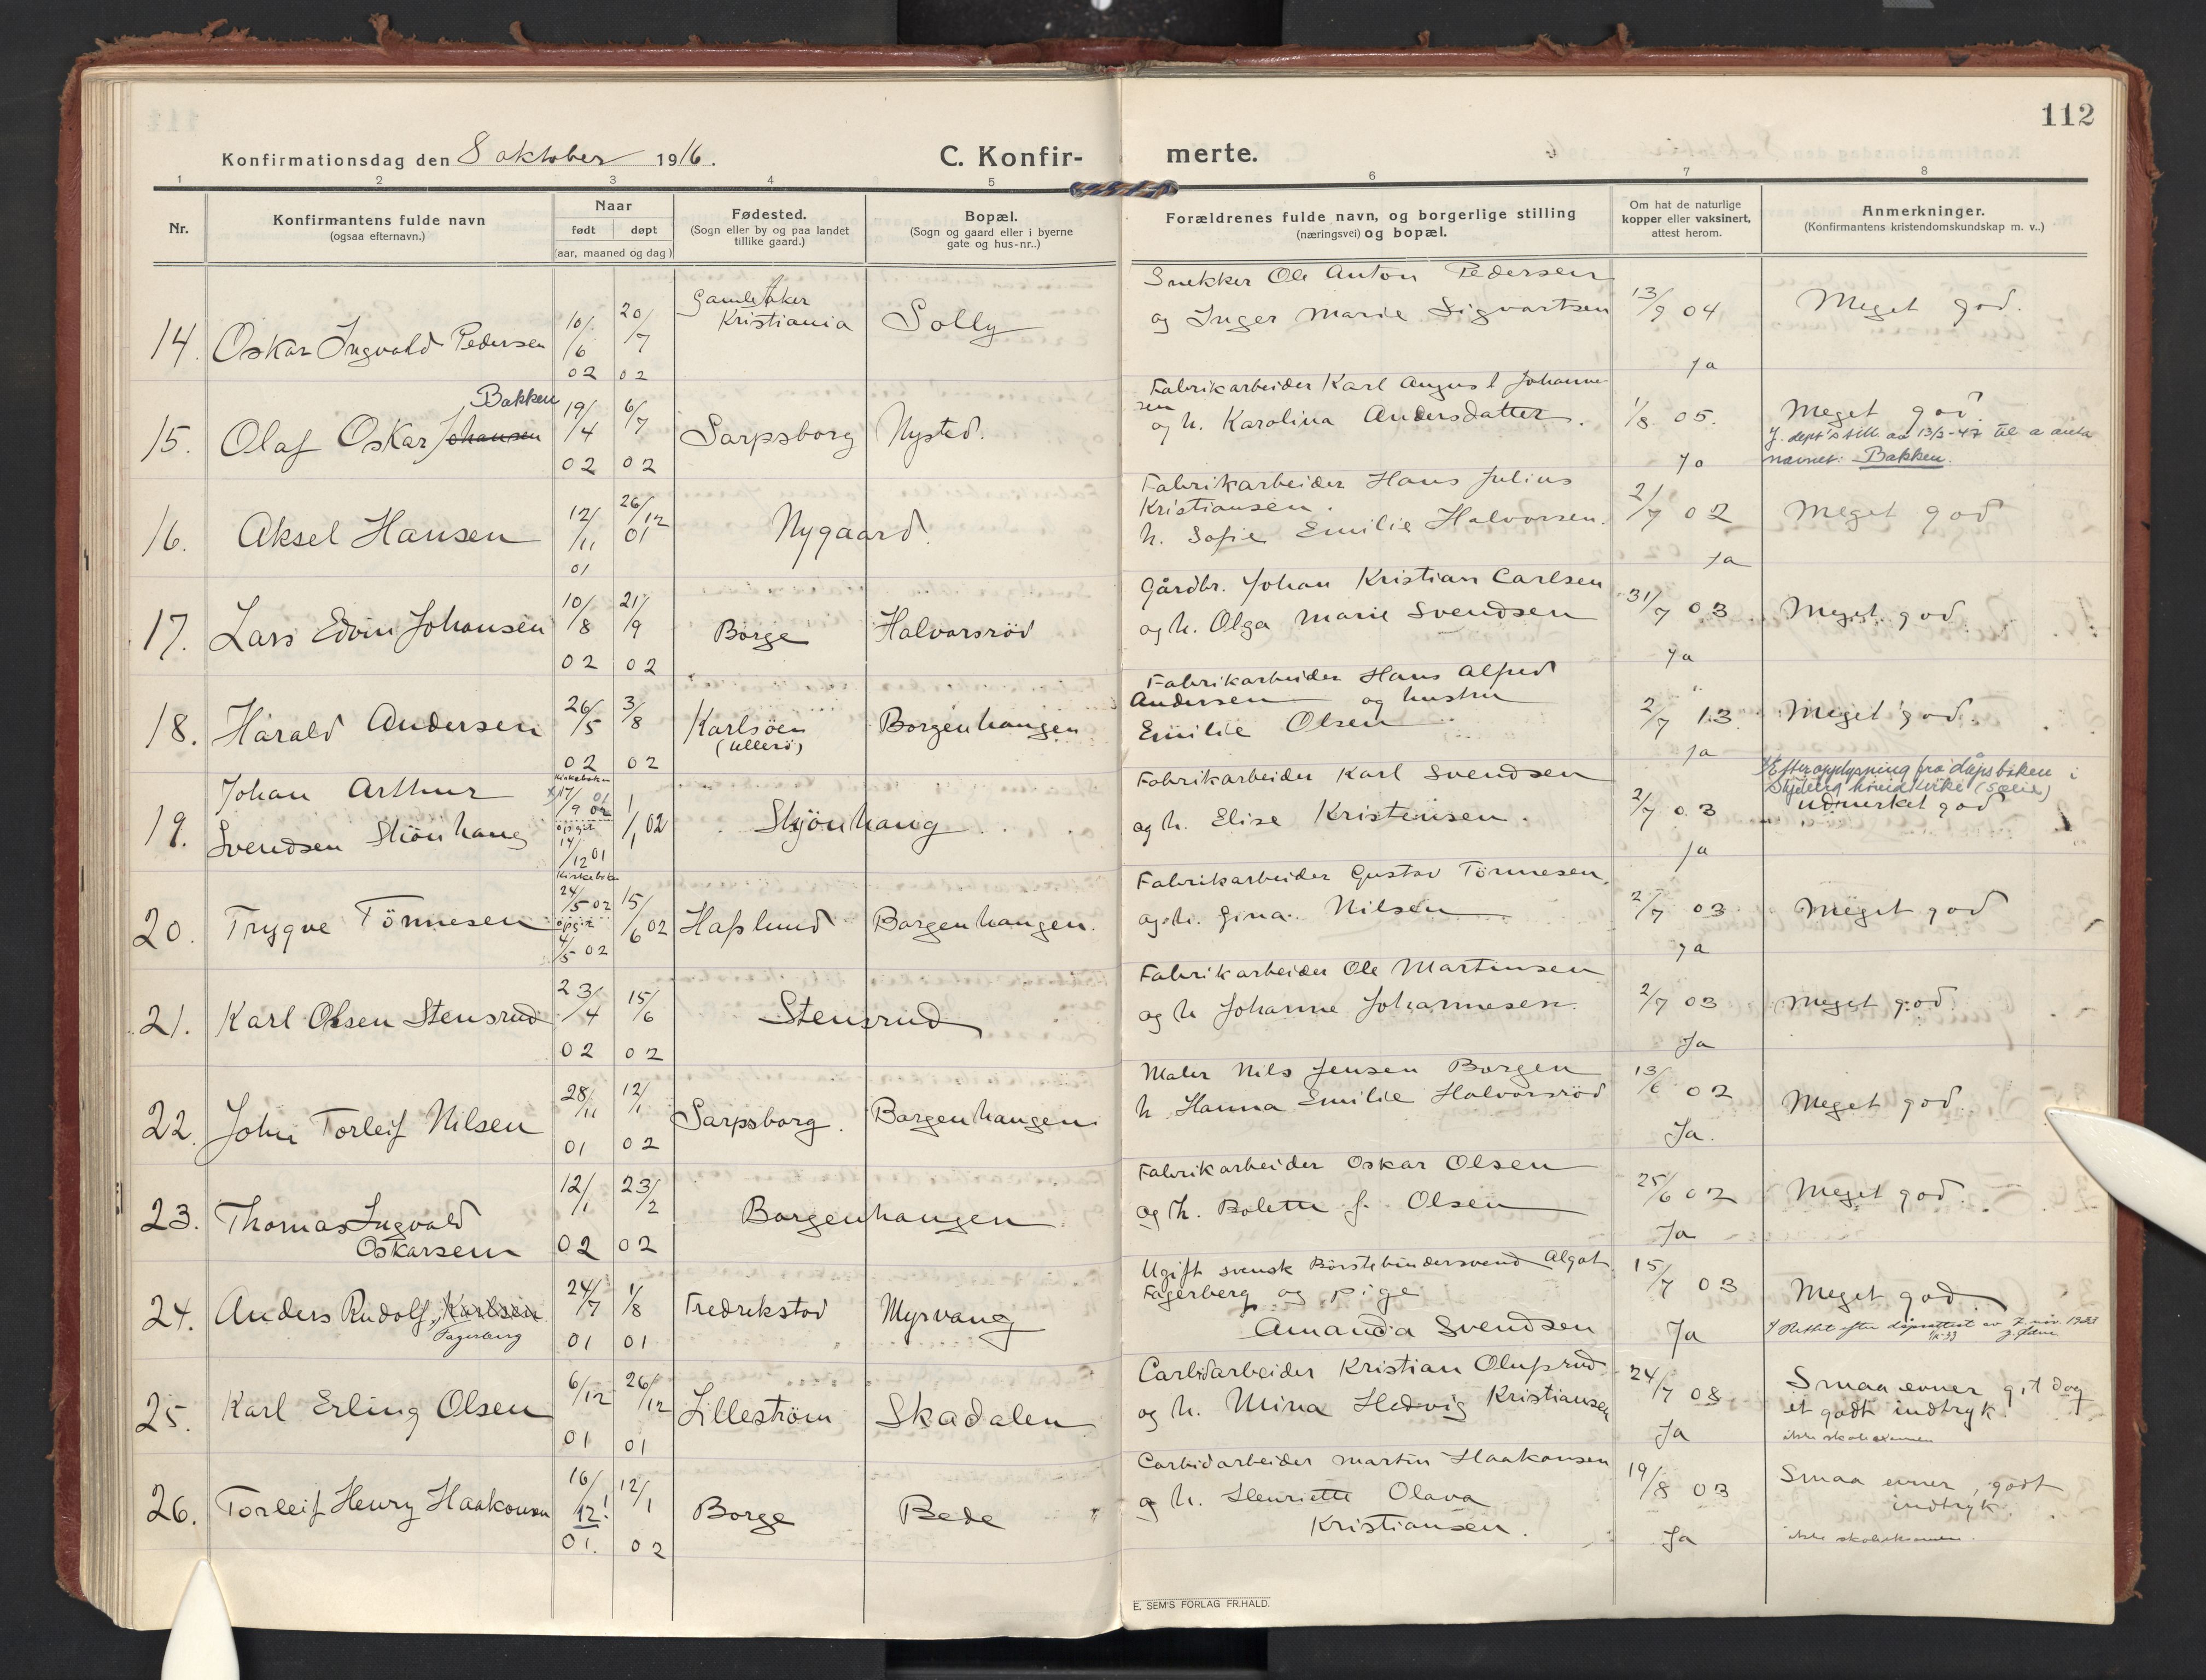 112
Konfirmationsdag den 8 oktober 1916.
C. Konfir- merte.
1 2 3 4 5 6 7 8
Nr.
Konfirmantens fulde navn
(ogsaa efternavn.)
Naar
født døpt
(aar, maaned og dag)
Fødested.
(Sogn eller by og paa landet
tillike gaard.)
Bopæl.
(Sogn og gaard eller i byerne
gate og hus-nr..)
Forældrenes fulde navn, og borgerlige stilling
(næringsvei) og bopæl.
Om hat de naturlige
kopper eller vaksinert,
attest herom.
Anmerkninger.
(Konfirmantens kristendomskundskap m. v..)
14. Oskar Ingvald Pedersen
10/6 02
20/7 02
Gamle Aker
Kristiania
Solly
Snekker Ole Anton Pedersen
og Inger Marie Sigvartsen
13/9 04
Ja
Meget god.
15. Olaf Oskar Johansen
Bakken
19/4 02
6/7 02
Sarpsborg
Nysted.
Fabrikarbeider Karl August Johanne-
sen
og h. Karolina Andersdatter.
1/8 05.
Ja
Meget god.
J. dept's till. av 13/2-47 til a anta
navnet: Bakken.
16. Aksel Hansen
12/11 01
26/12 01
Nygaard.
Fabrikarbeider Hans Julius
Kristiansen.
h. Sofie Emilie Halvorsen.
2/7 02
Ja
Meget god
17. Lars Edvin Johansen
10/8 02
21/9 02
Borge
Halvorsröd
Gårdbr. Johan Kristian Carlsen
og h. Olga Marie Svendsen
31/7 03
Ja
Meget god
18. Harald Andersen
26/5 02
3/8 02
Karlsöen
(Ullerö)
Borgenhaugen
Fabrikarbeider Hans Alfred
Andersen og hustru
Emilie Olsen
2/7 13
Ja
Meget god.
19. Johan Arthur
Svendsen Skiönhaug
Kirkeboken
17/9 01 02
opgit
14/12 01
1/1 02
Skjönhaug
Fabrikarbeider Karl Svendsen
og h. Elise Kristensen.
2/7 03
Ja
Efter opplysning fra dåpsboken i
udmerket god
20. Trygve Tönnesen
Kirkebok
24/5 02
opgit
4/5 02
15/6 02
Hafslund
Borgenhaugen.
Fabrikarbeider Gustav Tönnesen,
og h. Gina Nilsen
2/7 03
Ja
Meget god
21. Karl Olsen Stensrud
23/4 02
15/6 02
Stensrud
Fabrikarbeider Ole Martinsen
og h Johanne Johannesen
2/7 03
Ja
Meget god
22. John Torleif Nilsen
28/11 01
12/1 02
Sarpsborg.
Borgenhaugen
Maler Nils Jensen Borgen
h. Hanna Emilie Halvorsröd
13/6 02
Ja.
Meget god
23. Thomas Ingvald
Oskarsen
12/1 02
23/2 02
Borgenhaugen
Fabrikarbeider Oskar Olsen
og h. Bolette f. Olsen
25/6 02
Ja
Meget god.
24. Anders Rudolf Karlsen
Fagerberg
24/7 01
1/8 01
Fredrikstad
Myrvang
Ugift svensk Börstebindersvend Algot
Fagerberg og pige
Amanda Svendsen
15/7 03
Ja
Meget god
Rettet efter dåpsattest av 7. nov. 1933
25. Karl Erling Olsen
6/12 01
26/12 01
Lilleström
Skadalen
Carbidarbeider Kristian Olufsrud
og h. Mina Hedvig Kristiansen
24/7 08
Ja
Smaa evner, git dog
et godt indtryk.
ikke skoleexamen
26. Torleif Henry Haakonsen
16/12! 01.
12/1 02
Borge
Bede
Carbidarbeider Martin Haakonsen
og h. Henriette Olava
Kristiansen.
19/8 03
Ja
Smaa evner, godt
indtryk.
ikke skoleeksamen.
E. SEM'S FORLAG FR.HALD.